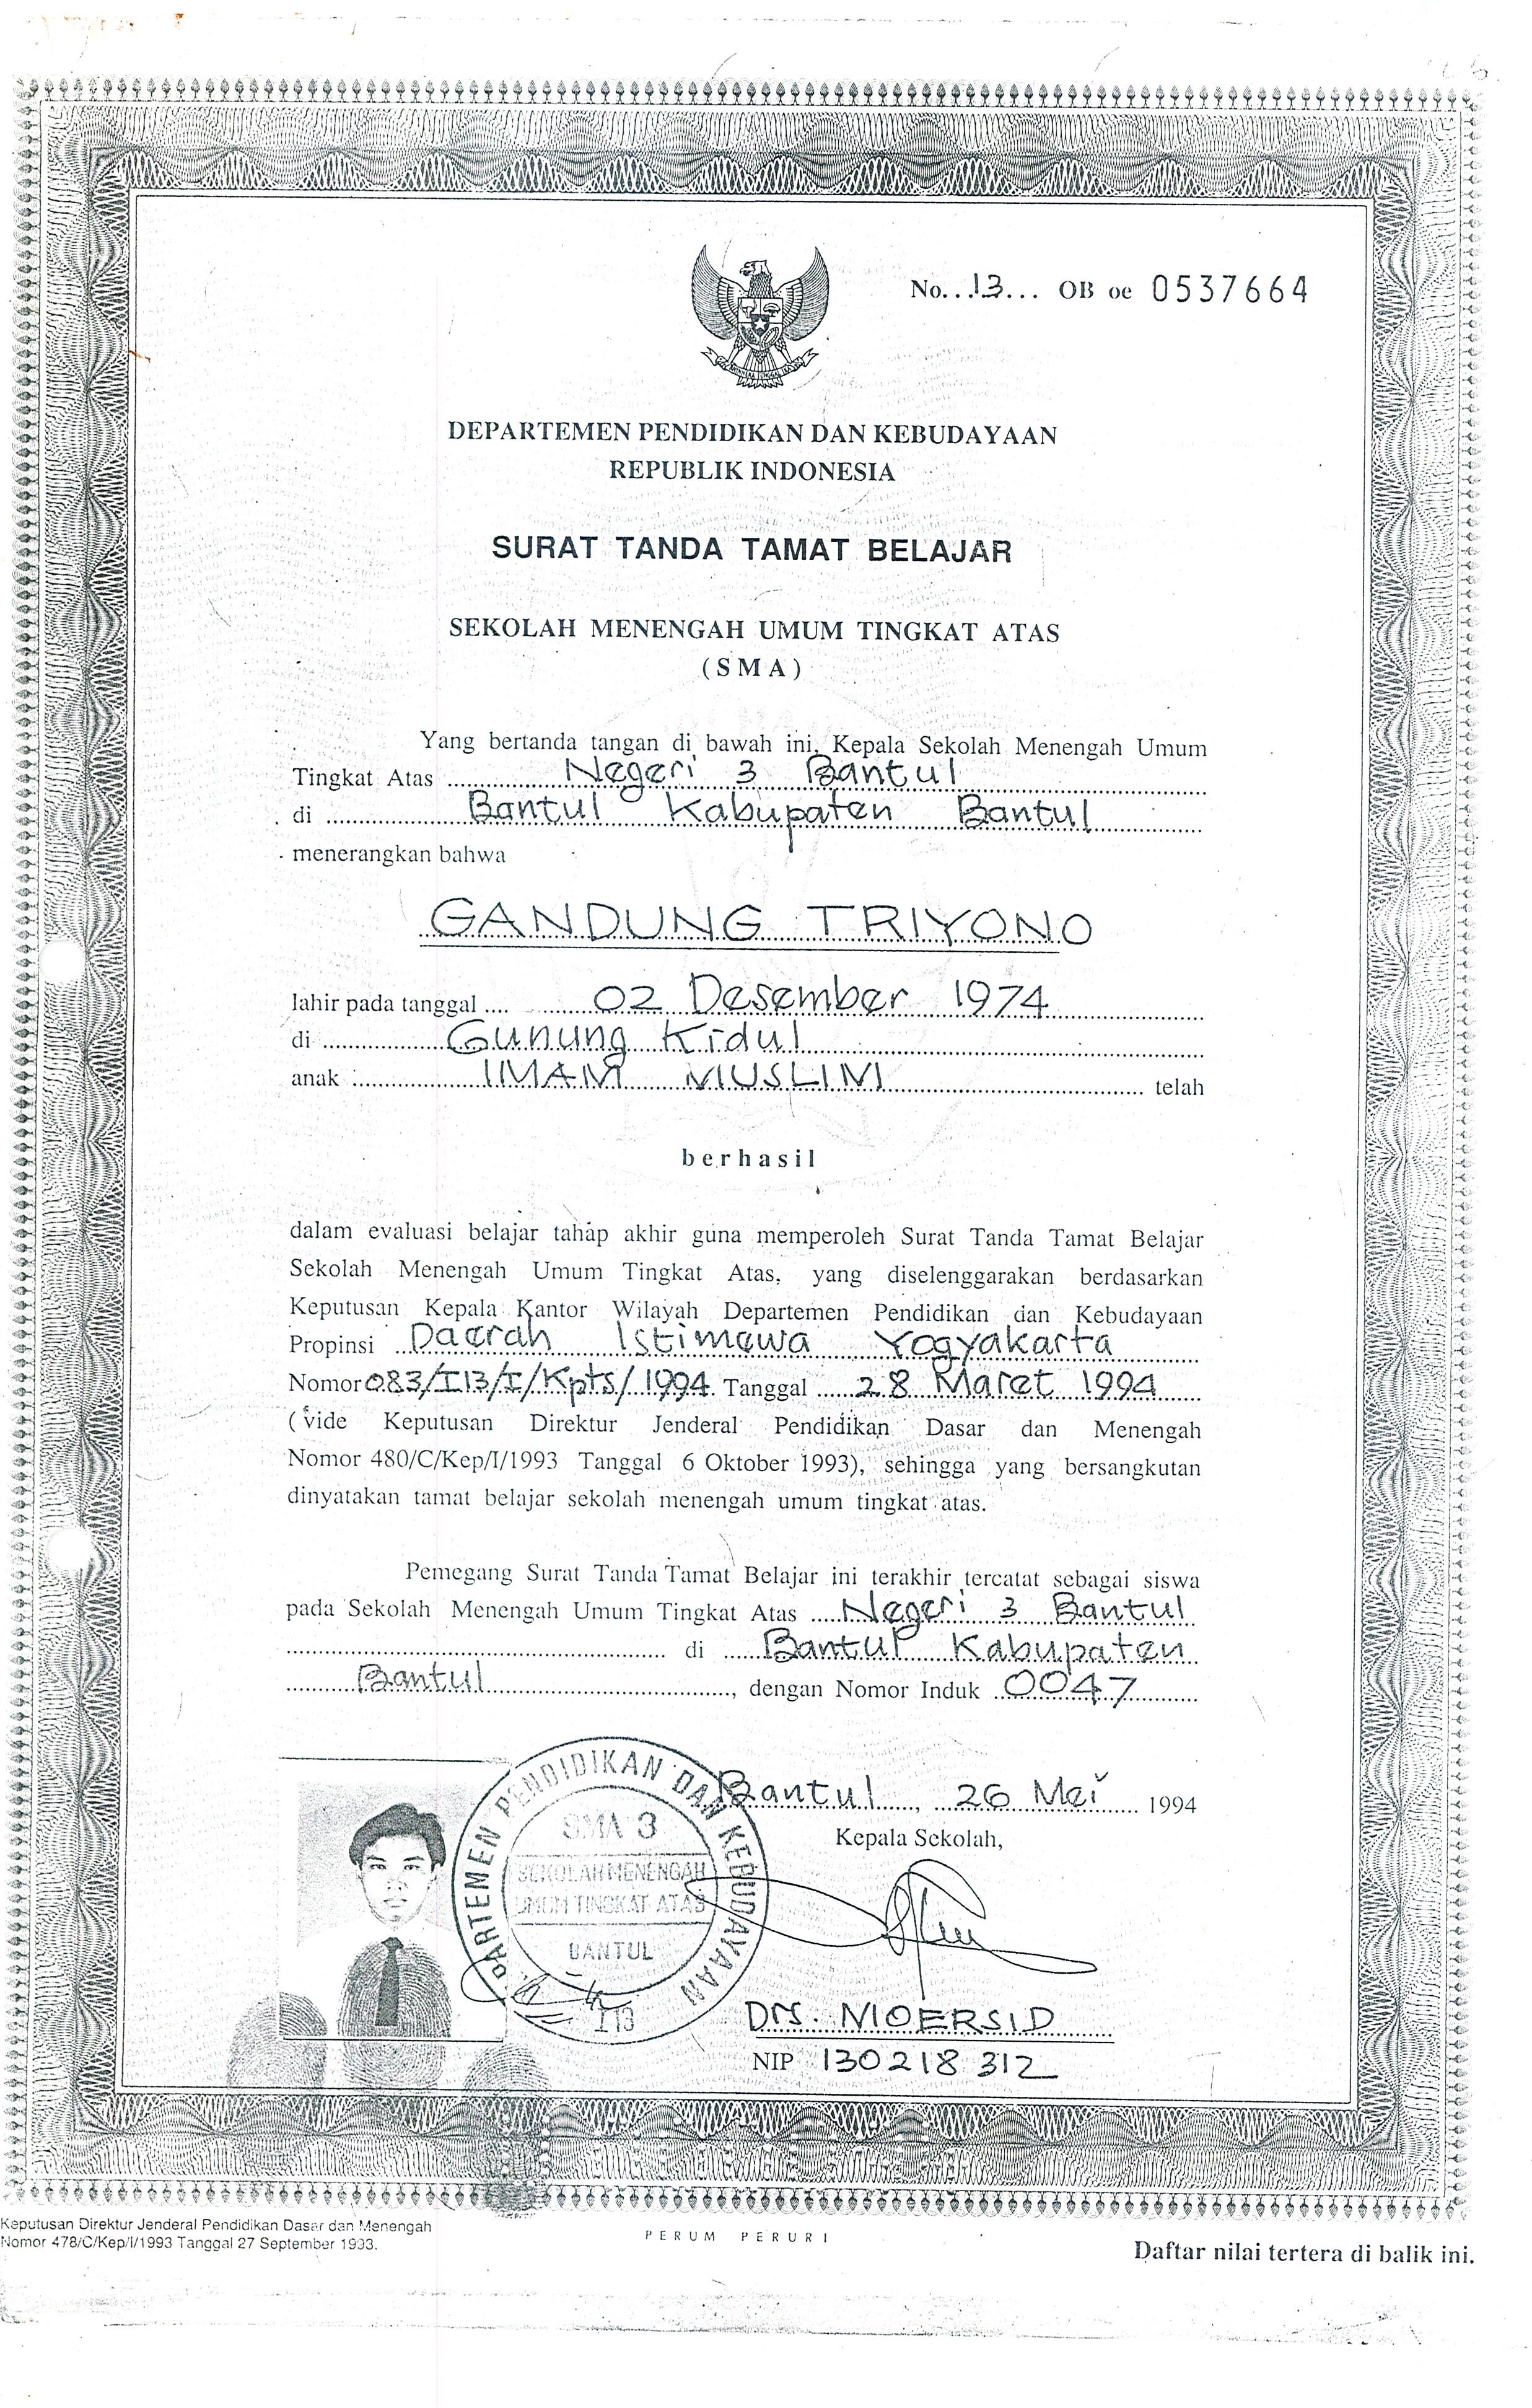 No...13... OB oe 0537664
DEPARTEMEN PENDIDIKAN DAN KEBUDAYAAN
REPUBLIK INDONESIA
SURAT TANDA TAMAT BELAJAR
SEKOLAH MENENGAH UMUM TINGKAT ATAS
(SMA)
Yang bertanda tangan di bawah ini, Kepala Sekolah Menengah Umum
Tingkat Atas Negeri 3 Bantul
di Bantul Kabupaten Bantul
menerangkan bahwa
GANDUNG TRIYONO
lahir pada tanggal 02 Desember 1974
di Gunung Kidul
anak IMAM MUSLIM telah
berhasil
dalam evaluasi belajar tahap akhir guna memperoleh Surat Tanda Tamat Belajar
Sekolah Menengah Umum Tingkat Atas, yang diselenggarakan berdasarkan
Keputusan Kepala Kantor Wilayah Departemen Pendidikan dan Kebudayaan
Propinsi Daerah Istimewa Yogyakarta
Nomor 083/I13/I/Kpts/1994 Tanggal 28 Maret 1994
(vide Keputusan Direktur Jenderal Pendidikan Dasar dan Menengah
Nomor 480/C/Kep/I/1993 Tanggal 6 Oktober 1993), sehingga yang bersangkutan
dinyatakan tamat belajar sekolah menengah umum tingkat atas.
Pemegang Surat Tanda Tamat Belajar ini terakhir tercatat sebagai siswa
pada Sekolah Menengah Umum Tingkat Atas Negeri 3 Bantul
di Bantul Kabupaten
Bantul, dengan Nomor Induk 0047
Bantul, 26 Mei 1994
Kepala Sekolah,
DEPARTEMEN PENDIDIKAN DAN KEBUDAYAAN
SMA 3
SEKOLAH MENENGAH
UMUM TINGKAT ATAS
BANTUL
I 13
Drs. MOERSID
NIP 130218312
Keputusan Direktur Jenderal Pendidikan Dasar dan Menengah
Nomor 478/C/Kep/I/1993 Tanggal 27 September 1993.
PERUM PERURI
Daftar nilai tertera di balik ini.